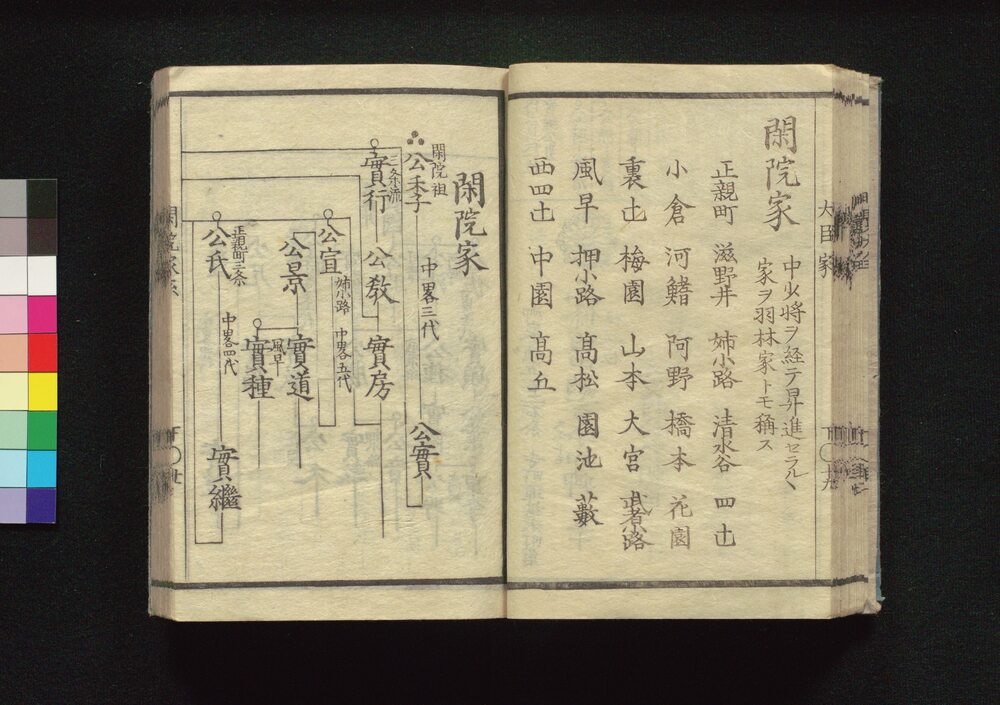 閑院家
中少将ヲ経テ昇進セラルヽ
家ヲ羽林家トモ稱ス
正親町 滋野井 姉小路 清水谷 四辻
小倉 河鰭 阿野 橋本 花園
裏辻 梅園 山本 大宮 武者小路
風早 押小路 高松 園池 藪
西四辻 中園 高丘
大臣家
下〇十九
閑院家
閑院祖
公季
中畧三代
公實
三条流
實行
公教
實房
公宣
姉小路
中畧五代
公景
實道
實種
風早
正親町三条
公氏
中畧四代
實繼
閑院家系
下〇廿